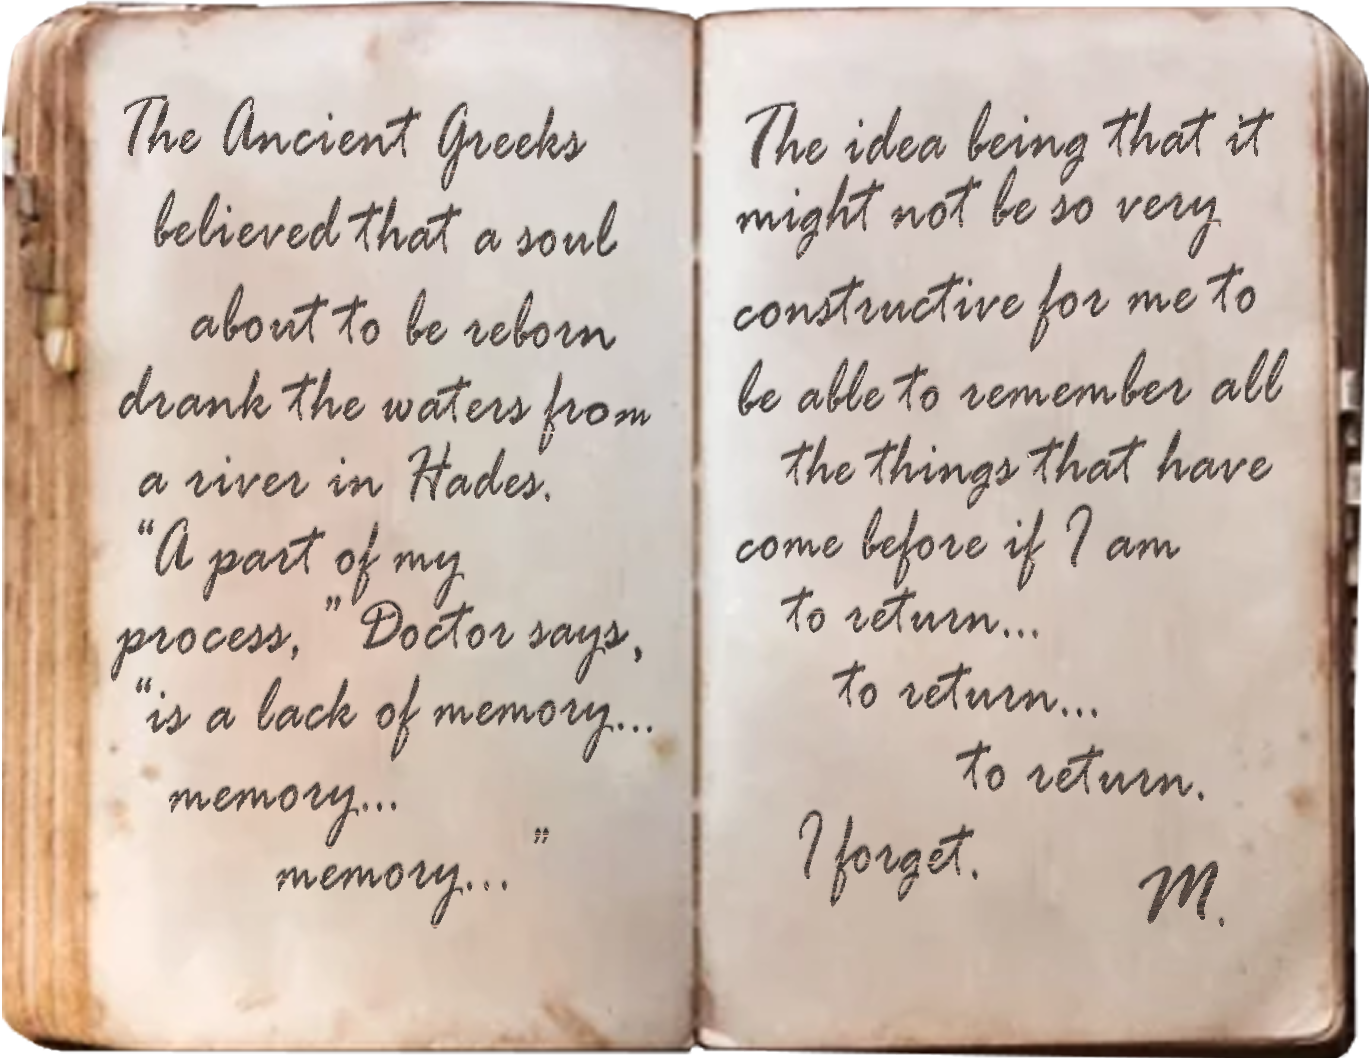 The Ancient Greeks
believed that a soul
about to be reborn
drank the waters from
a river in Hades.
“A part of my
process,” Doctor says,
“is a lack of memory...
memory...
memory...”
The idea being that it
might not be so very
constructive for me to
be able to remember all
the things that have
come before if I am
to return...
to return...
to return.
I forget.
M.